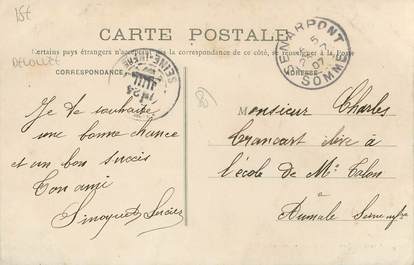 15€
CARTE POSTALE
Certains pays étrangers n'acceptent pas la correspondance de ce côté, se renseigner à la Poste
CORRESPONDANCE
ADRESSE
SENARPONT
SOMME
07
SEINE-INFRE
Je te souhaite
une bonne chance
et un bon succès
Ton ami
Sinoquet
Monsieur Charles
Crancart élève à
l'école de Mr Talon
Aumale Seine-Infre